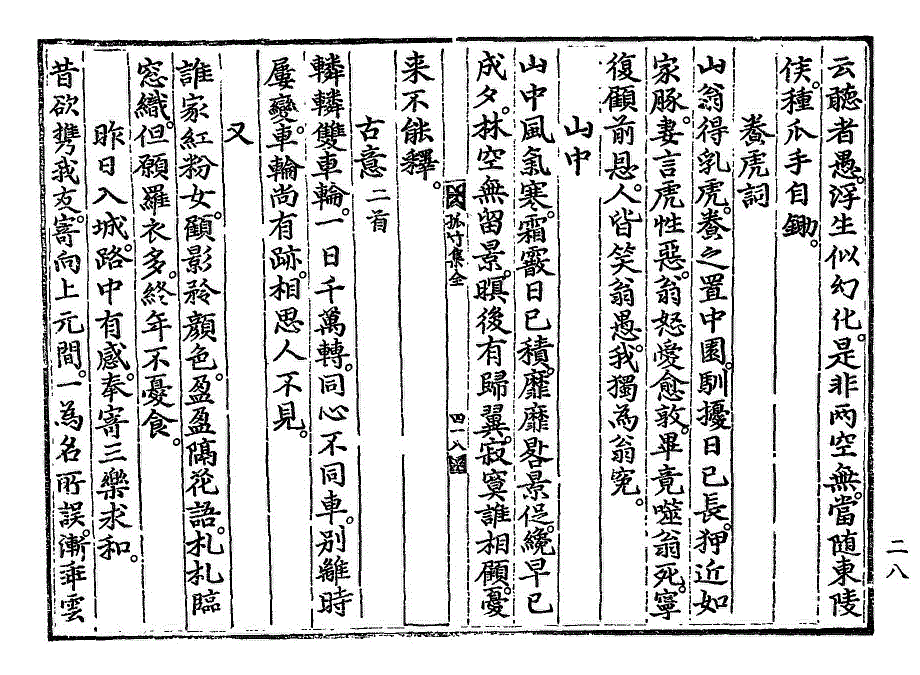 云聽者愚。浮生似幻化。是非兩空無。當随東陵
侯。種瓜手自鋤。
養虎詞
山翁得乳虎。養之置中園。馴擾日已長。狎近如
家豚。妻言虎性惡。翁怒愛愈敦。畢竟噬翁死。寧
復顧前恩。人皆笑翁愚。我獨為翁寃。
山中
山中風氣寒。霜霰日已積。靡靡晷景促。纔早已
成夕。林空無留景。暝後有歸翼。寂寞誰相顧。憂
来不能釋。
孤竹集全
四一八
古意 二首
轔轔雙車輪。一日千萬轉。同心不同車。別離時
屢變。車輪尚有跡。相思人不見。
又
誰家紅粉女。顧影矜顔色。盈盈隔花語。札札臨
窓織。但願羅衣多。終年不憂食。
昨日入城。路中有感。奉寄三樂求和。
昔欲携我友。寄向上元間。一為名所誤。漸乖雲
二八